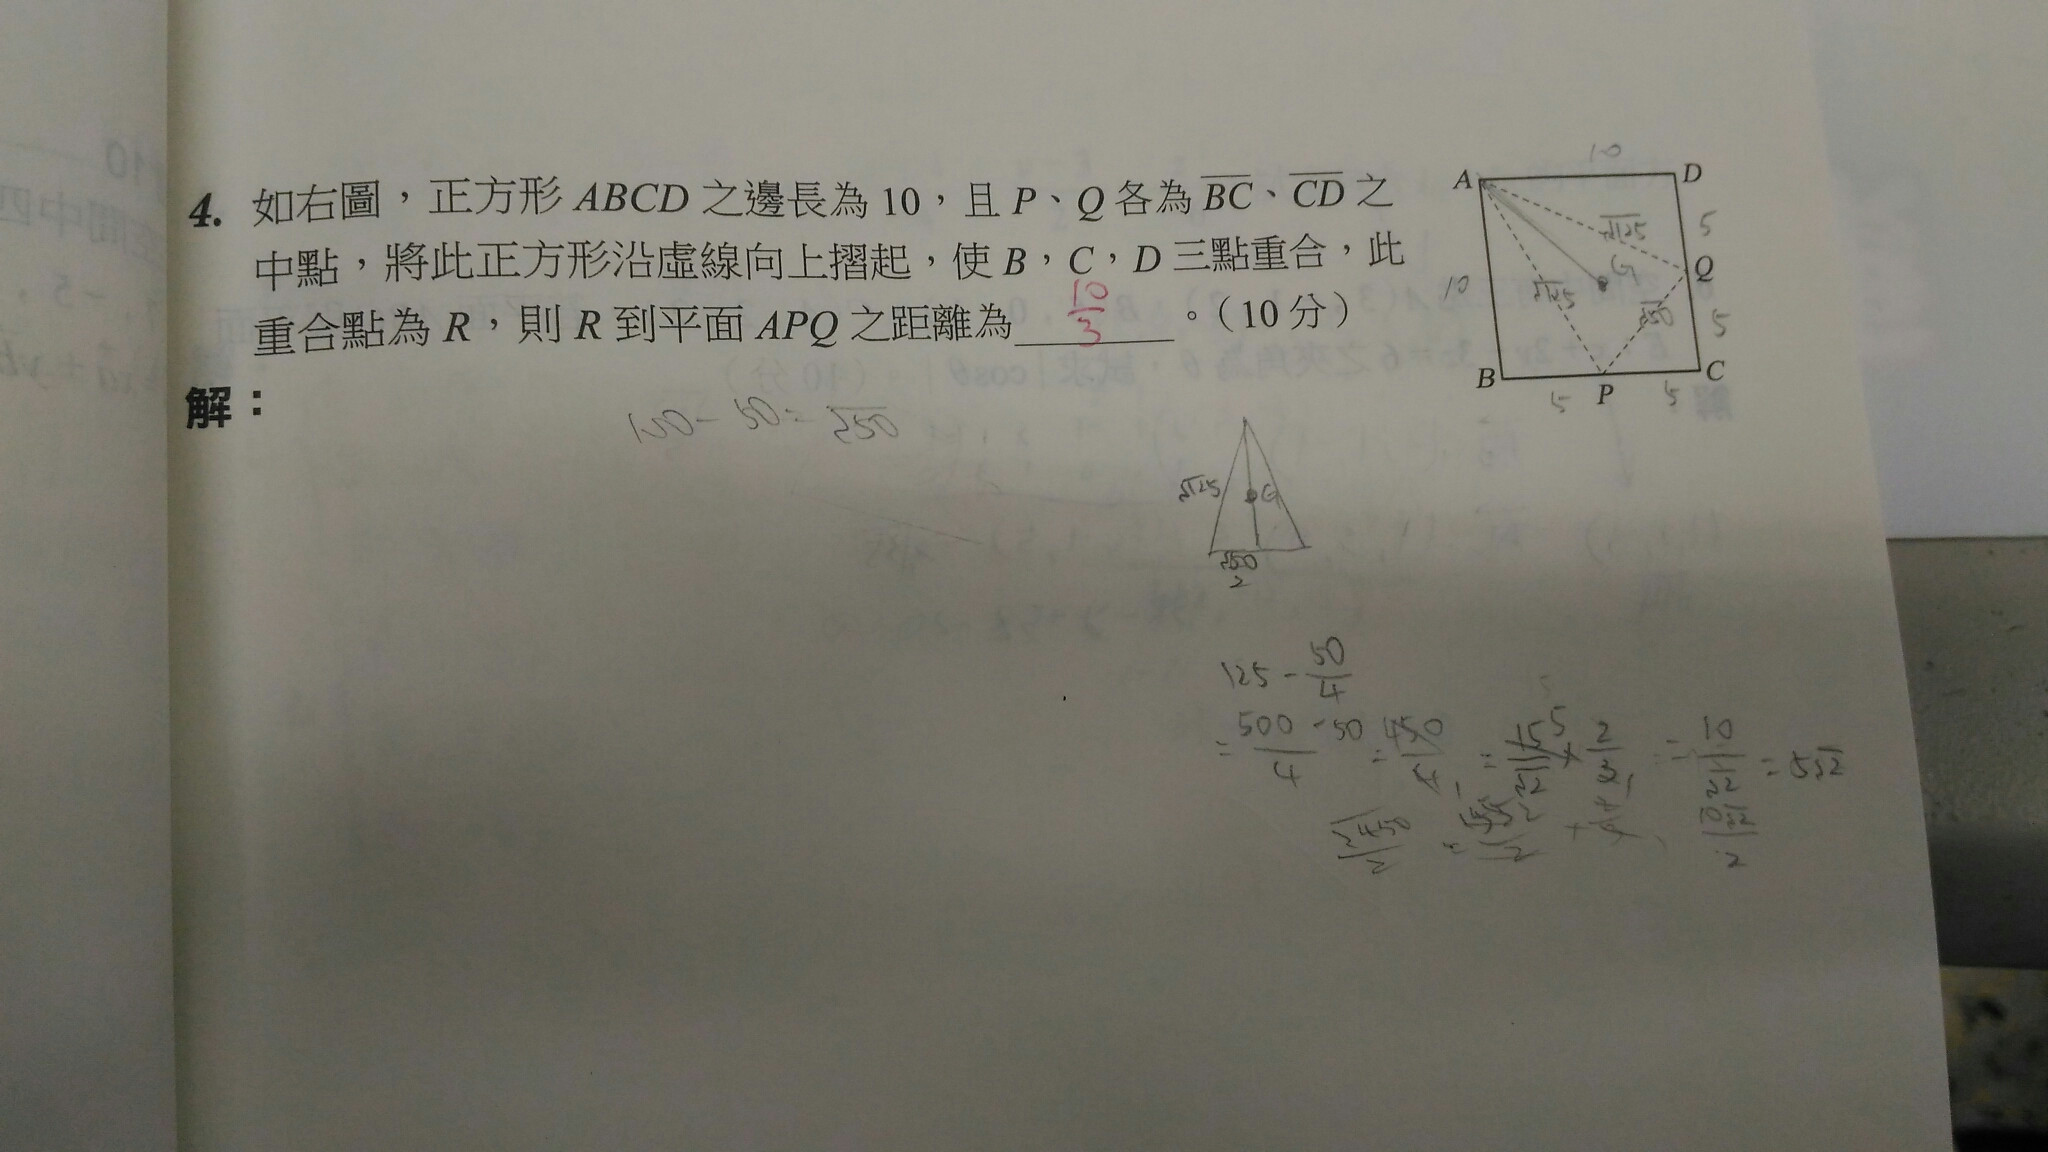 4. 如右圖，正方形 ABCD 之邊長為 10，且 P、Q 各為 BC、CD 之
中點，將此正方形沿虛線向上摺起，使 B，C，D 三點重合，此
重合點為 R，則 R 到平面 APQ 之距離為 10/3 。（10 分）
解：
A
D
10
5
√125
G
Q
10
√125
√50
5
B
5
P
5
C
100 - 50 = √50
√125
G
√50/2
125 - 50/4
= (500 - 50)/4 = 450/4 = 15/√2 × 2/3 = 10/√2 = 5√2
√450/2
10√2/2